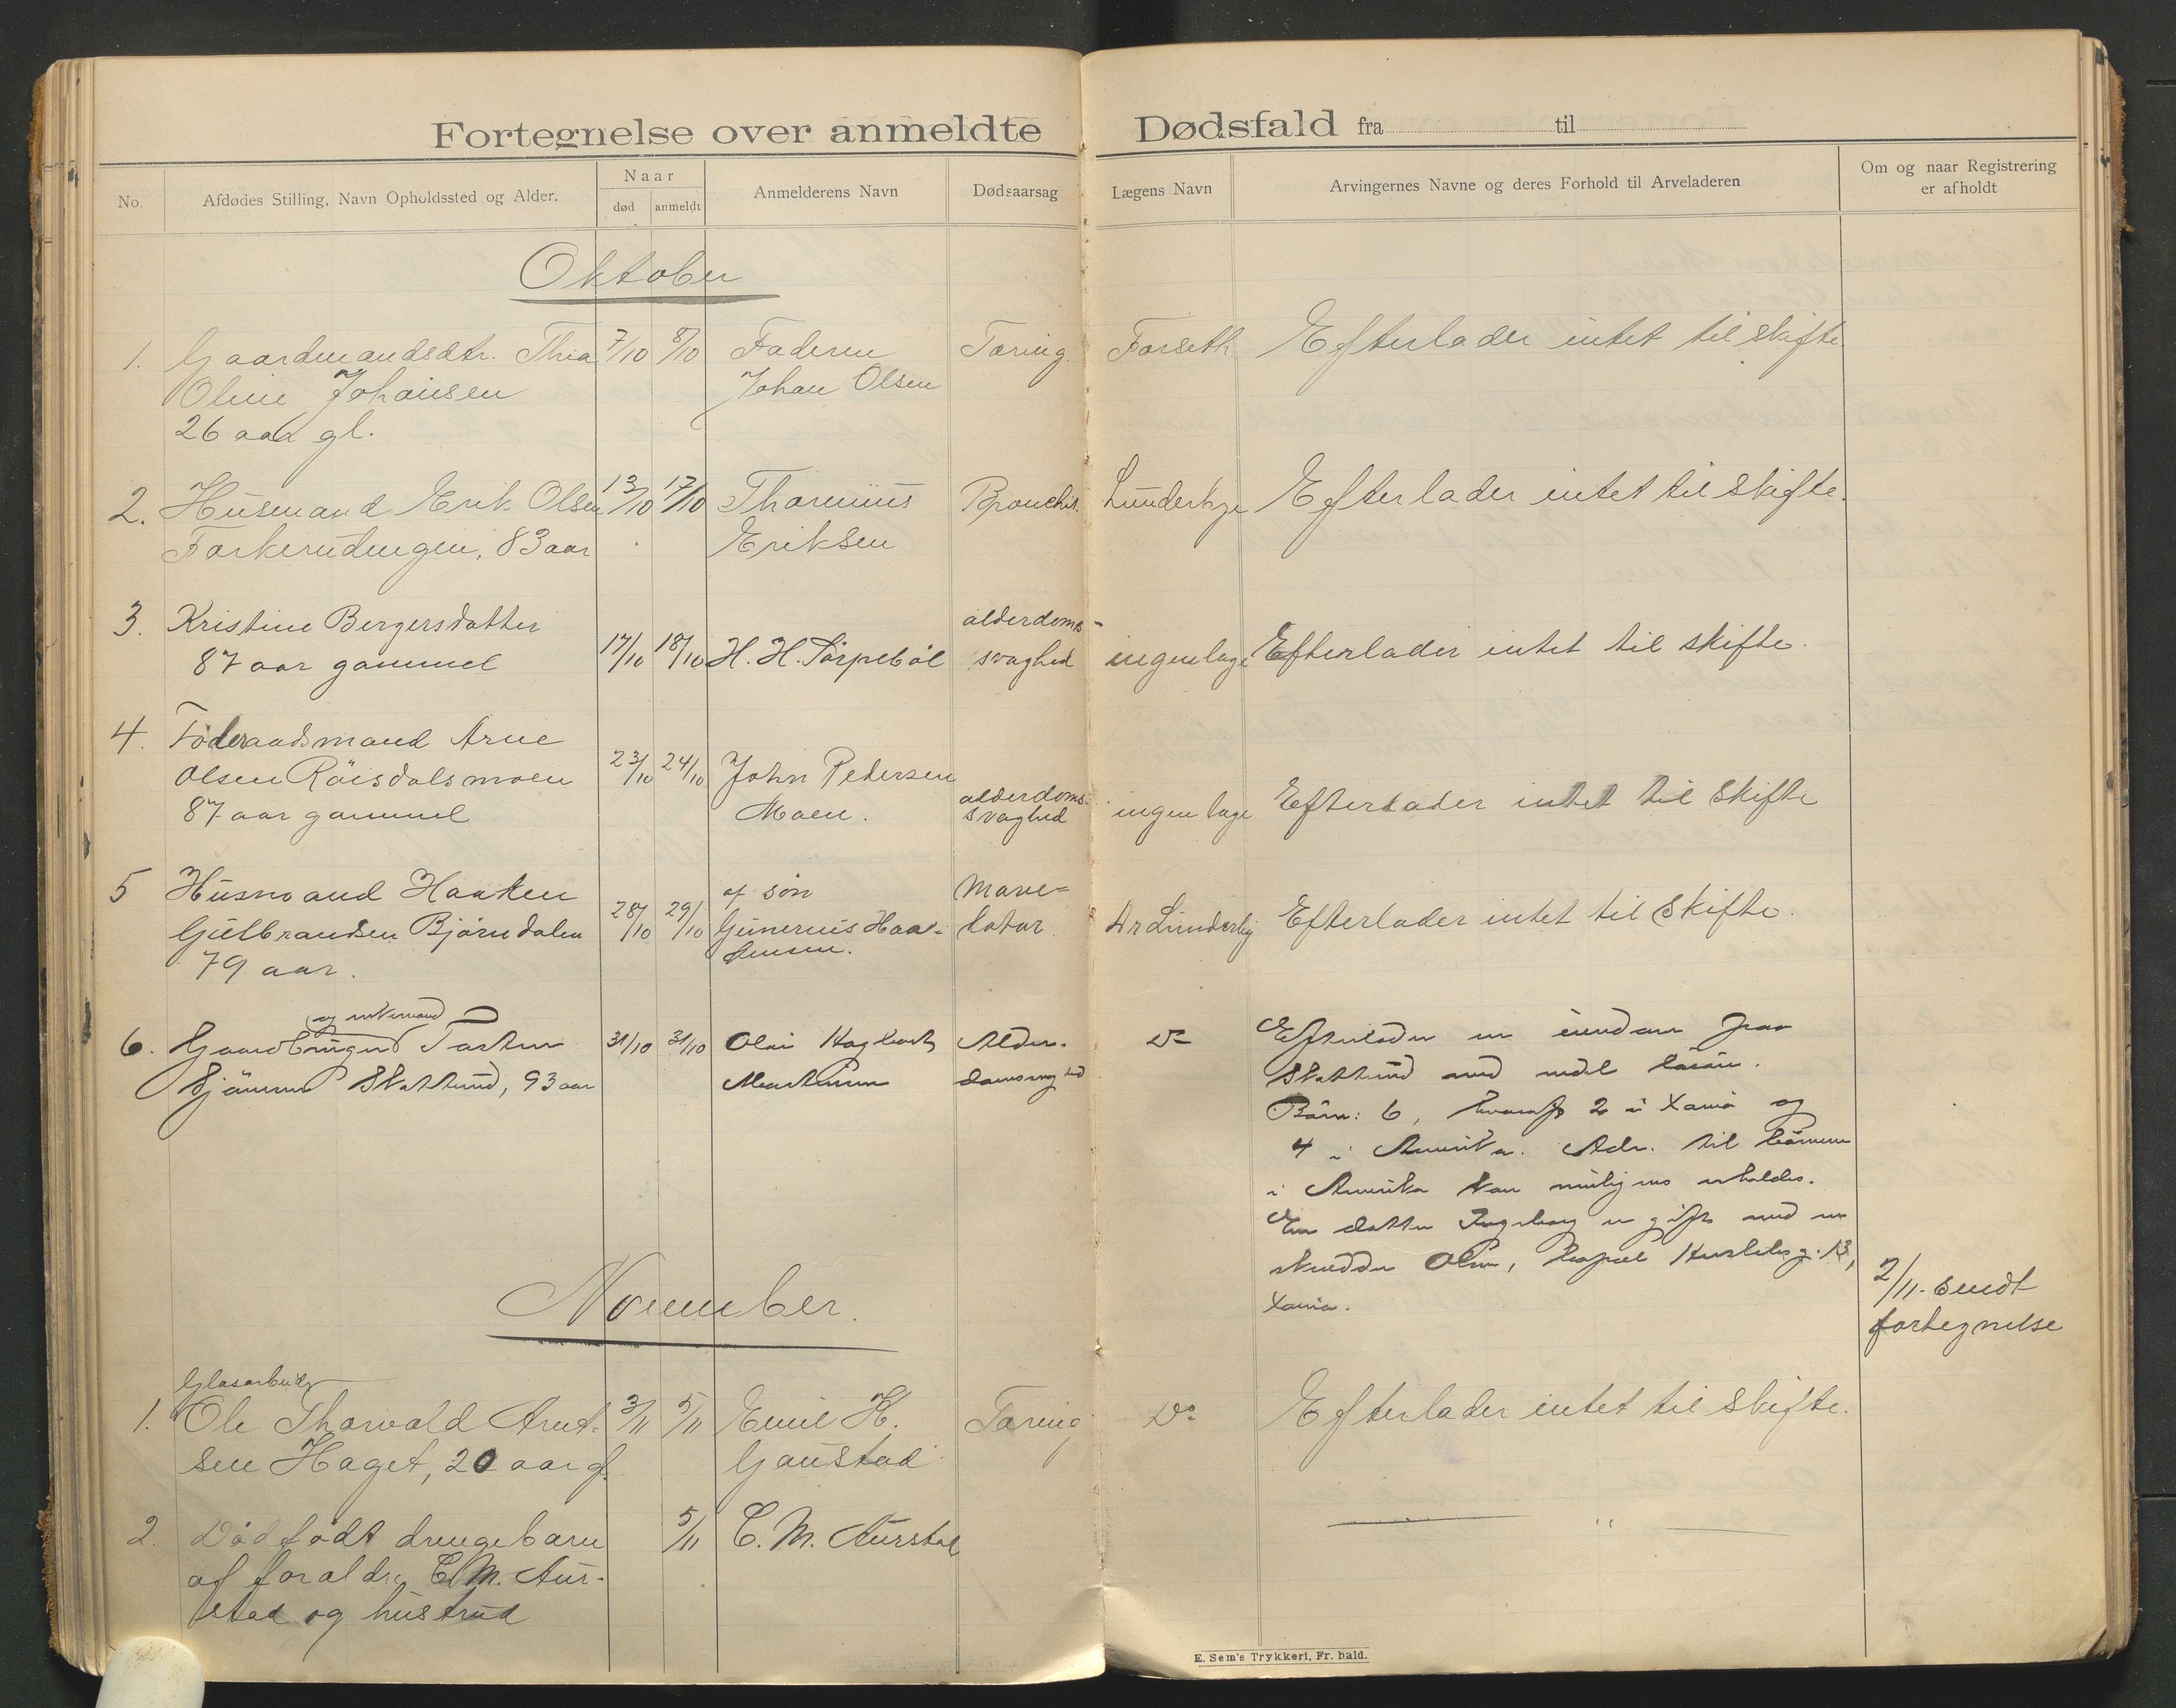 Fortegnelse over anmeldte Dødsfald fra til
No.
Afdødes Stilling, Navn Opholdssted og Alder.
Naar
død
anmeldt
Anmelderens Navn
Dødsaarsag
Lægens Navn
Arvingernes Navne og deres Forhold til Arveladeren
Om og naar Registrering
er afholdt
Oktober
1. Gaardmandsdtr. Thea 7/10 8/10 Faderen Tæring Forseth Efterlader intet til skifte.
Oline Johansen Johan Olsen
26 aar gl.
2. Husmand Erik Olsen 13/10 17/10 Thorinus Bronchit. Lunderbye Efterlader intet til skifte.
83 aar Eriksen
3. Kristine Bergersdatter alderdoms-
87 aar gammel 17/10 18/10 H. H. svaghed ingen læge Efterlader intet til skifte.
4. Föderaadsmand Arne
Olsen Röisdalsmoen 23/10 24/10 John Pedersen
87 aar gammel Moen. alderdoms-
svaghed ingen læge Efterlader intet til skifte
5 Husmand Haaken af søn Mave-
Gulbrandsen Bjørndalen 28/10 29/10 Gunerius Haa- katar Dr Lunderby Efterlader intet til skifte.
79 aar. kensen.
og enkemand
6. Gaardbruger Torsten 31/10 31/10 Olai Hagbart Alder- Do Efterlader en eiendom
93 aar Martinsen med endel løsøre.
Börn: 6, hvoraf 2 i Xania og
4 i Amerika. Adr. til börnene
i Amerika kan muligens erholdes.
En datter Ingeborg er gift med en
skrædder Olsen, 13,
Xania.
2/11. sendt
fortegnelse
November.
Glasarbeider
1. Ole Thorvald Arnt- 3/11 5/11 Emil H. Tæring Do Efterlader intet til skifte.
sen Haget, 20 aar gl. Gaustad
2. Dødfødt drengebarn 5/11 C. M. Aurstad "
af forældre C. M. Aur-
stad og hustrud
E. Sem's Trykkeri, Fr. hald.